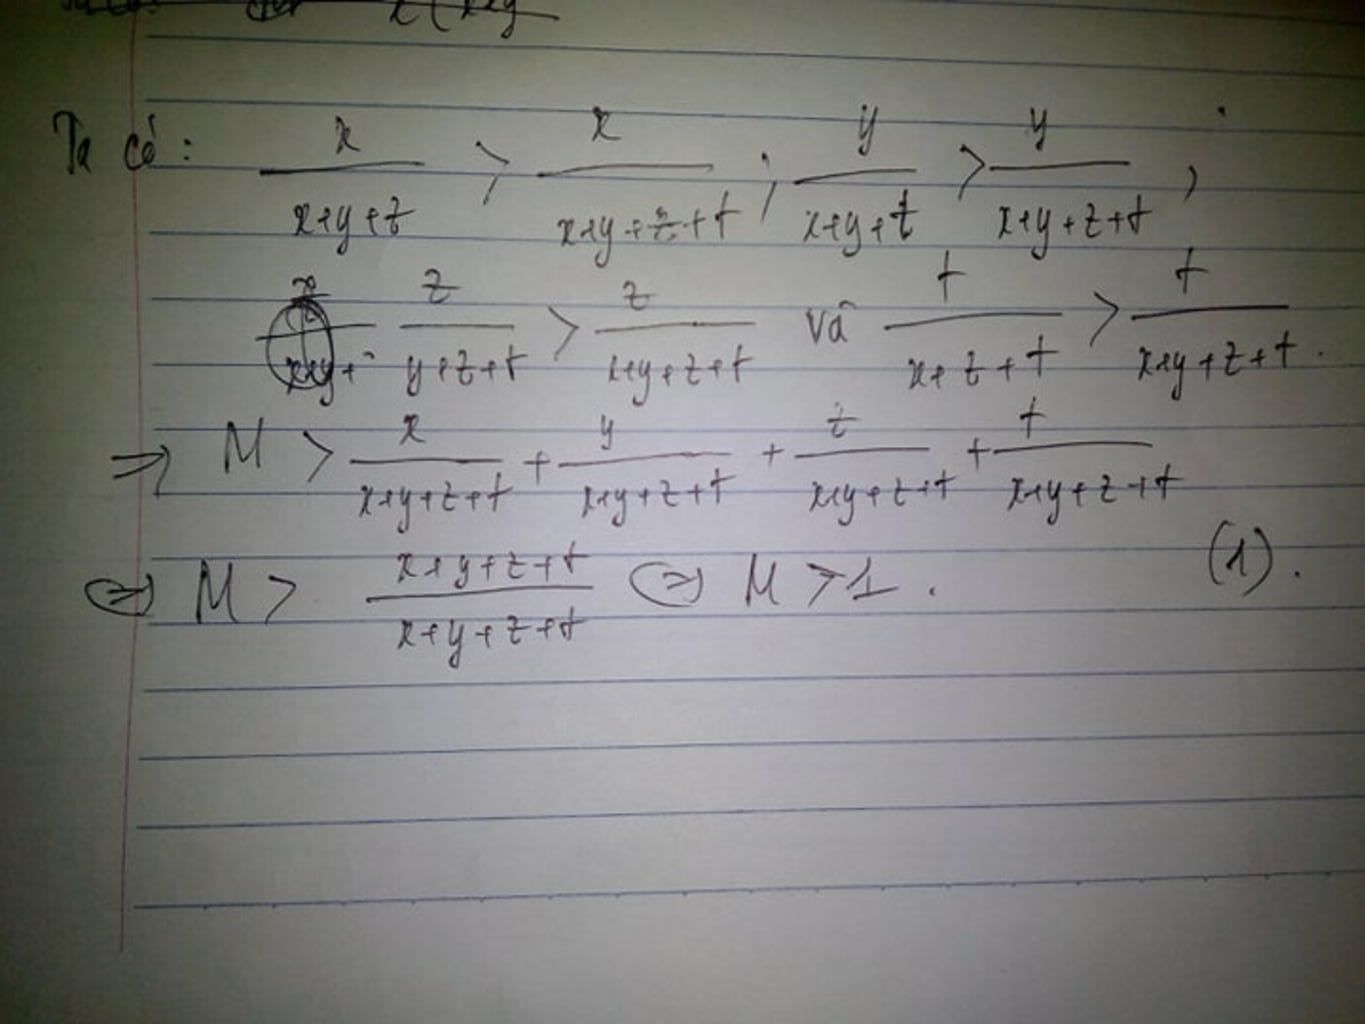 Ta có: x/(x+y+z) > x/(x+y+z+t) ; y/(x+y+t) > y/(x+y+z+t) ;
z/(y+z+t) > z/(x+y+z+t) và t/(x+z+t) > t/(x+y+z+t).
=> M > x/(x+y+z+t) + y/(x+y+z+t) + z/(x+y+z+t) + t/(x+y+z+t)
<=> M > (x+y+z+t)/(x+y+z+t) <=> M > 1. (1).